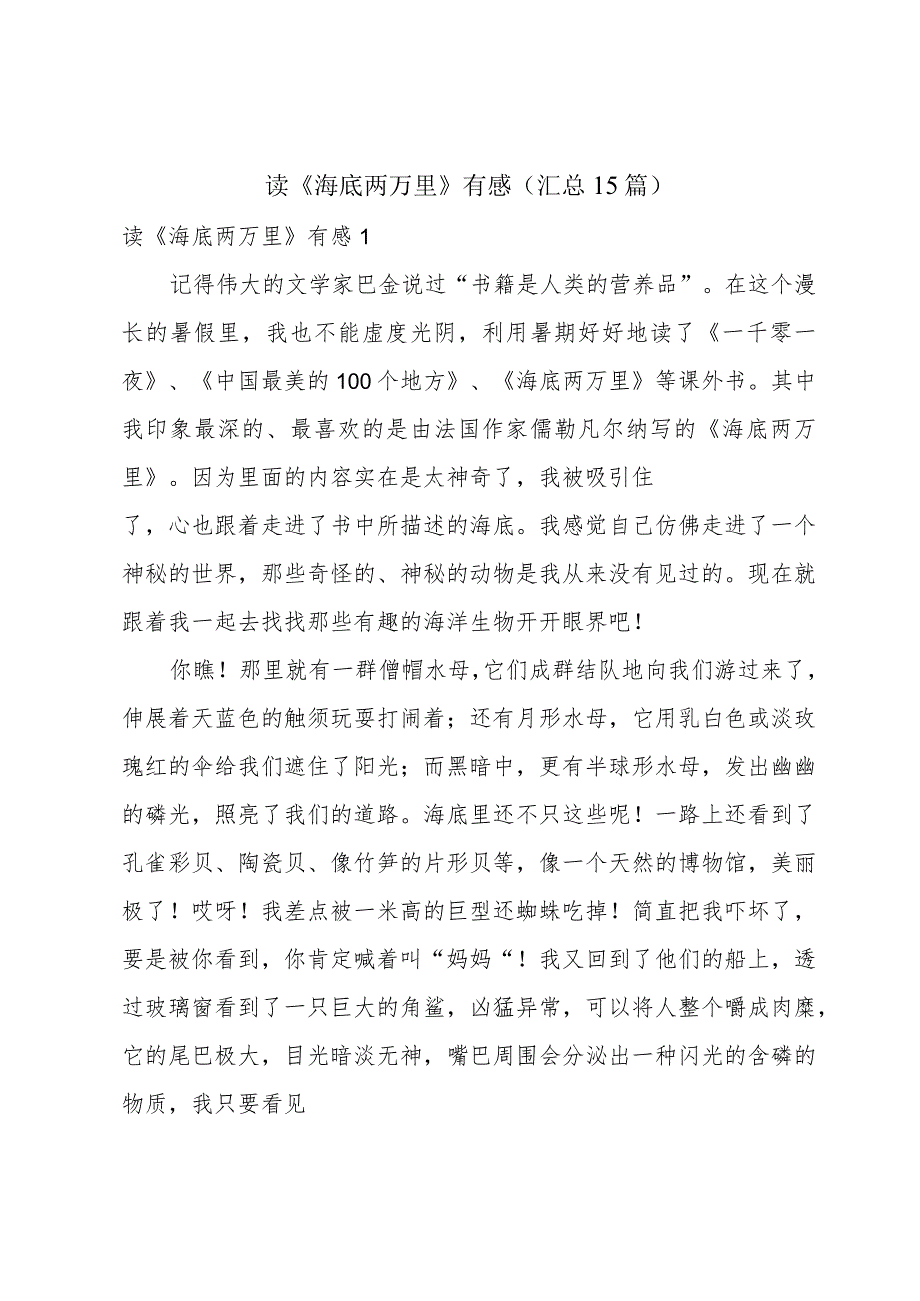 读《海底两万里》有感（汇总15篇）
读《海底两万里》有感1
记得伟大的文学家巴金说过“书籍是人类的营养品”。在这个漫
长的暑假里，我也不能虚度光阴，利用暑期好好地读了《一千零一
夜》、《中国最美的100个地方》、《海底两万里》等课外书。其中
我印象最深的、最喜欢的是由法国作家儒勒凡尔纳写的《海底两万
里》。因为里面的内容实在是太神奇了，我被吸引住
了，心也跟着走进了书中所描述的海底。我感觉自己仿佛走进了一个
神秘的世界，那些奇怪的、神秘的动物是我从来没有见过的。现在就
跟着我一起去找找那些有趣的海洋生物开开眼界吧！
你瞧！那里就有一群僧帽水母，它们成群结队地向我们游过来了，
伸展着天蓝色的触须玩耍打闹着；还有月形水母，它用乳白色或淡玫
瑰红的伞给我们遮住了阳光；而黑暗中，更有半球形水母，发出幽幽
的磷光，照亮了我们的道路。海底里还不只这些呢！一路上还看到了
孔雀彩贝、陶瓷贝、像竹笋的片形贝等，像一个天然的博物馆，美丽
极了！哎呀！我差点被一米高的巨型还蜘蛛吃掉！简直把我吓坏了，
要是被你看到，你肯定喊着叫“妈妈“！我又回到了他们的船上，透
过玻璃窗看到了一只巨大的角鲨，凶猛异常，可以将人整个嚼成肉糜，
它的尾巴极大，目光暗淡无神，嘴巴周围会分泌出一种闪光的含磷的
物质，我只要看见